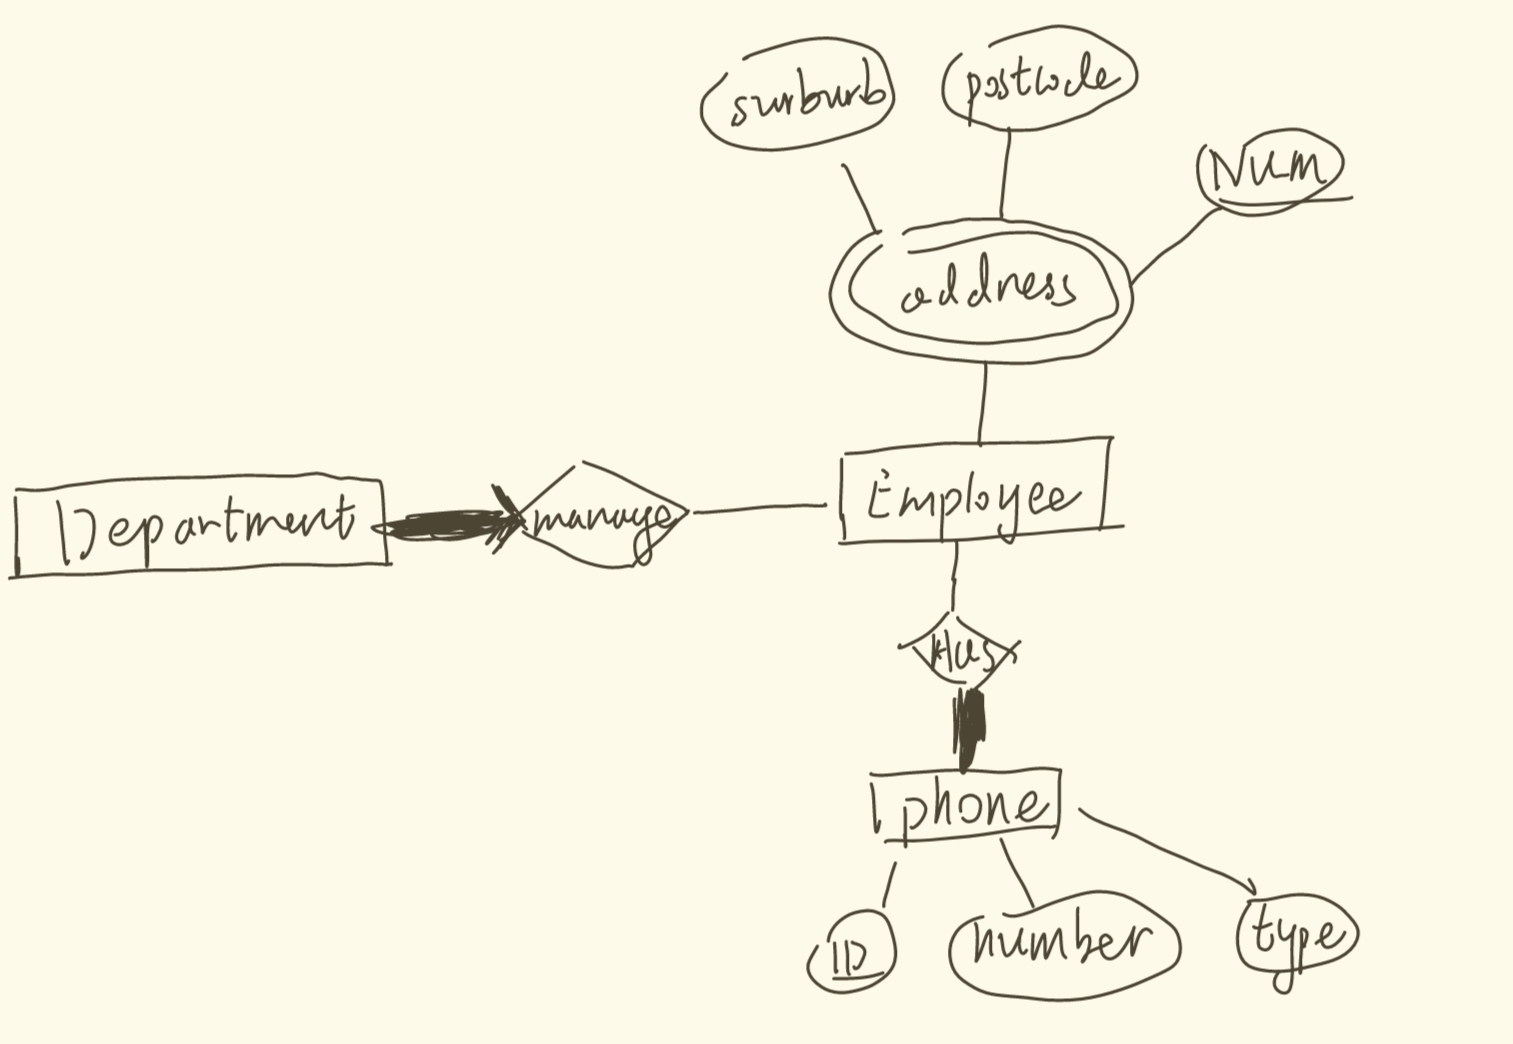 surburb
postcode
Num
address
Department
manage
Employee
Has
phone
ID
number
type